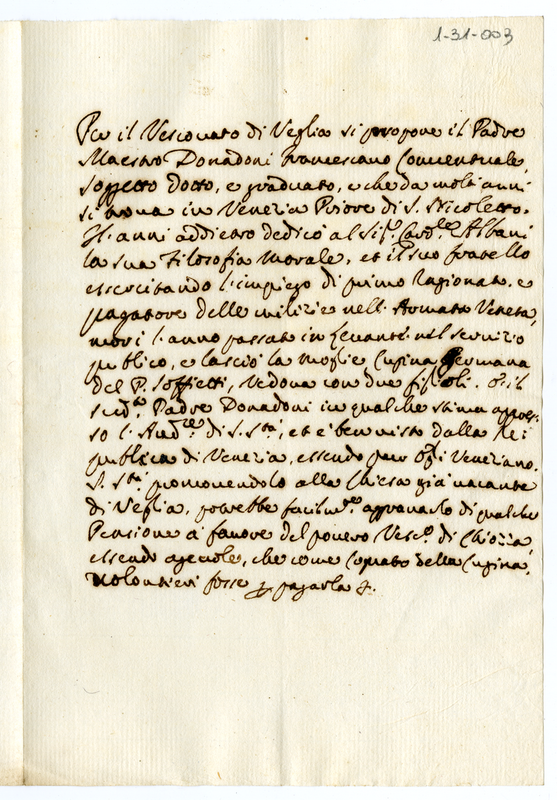 1-31-003
Per il Vescovato di Veglia si propone il Padre
Maestro Donadoni francescano Conventuale,
soggetto dotto, e graduato, e che da molti anni
si trova in Venezia Priore di S. Nicoletto.
Gl'anni addietro dedicò al Sig.r Card.le Albani
la sua Filosofia morale, et il suo fratello
essercitando l'impiego di primo Ragionato, e
pagatore delle milizie nell'Armata Veneta,
morì l'anno passato in Levante nel servizio
publico, e lasciò la moglie Cugina Germana
del P. Soffietti, Vedova con due figlioli. è il
sud.to Padre Donadoni in qualche stima appres-
so l'Aud.re di S. S.tà, et è ben visto dalla Re-
publica di Venezia, essendo pure Veneziano.
S. S.tà promovendolo alla Chiesa già vacante
di Veglia, potrebbe facilm.te aggravarlo di qualche
Pensione a favore del povero Vesc.o di Chiozza,
essendo agevole, che come Cognato della Cugina,
volontieri fosse p pagarla